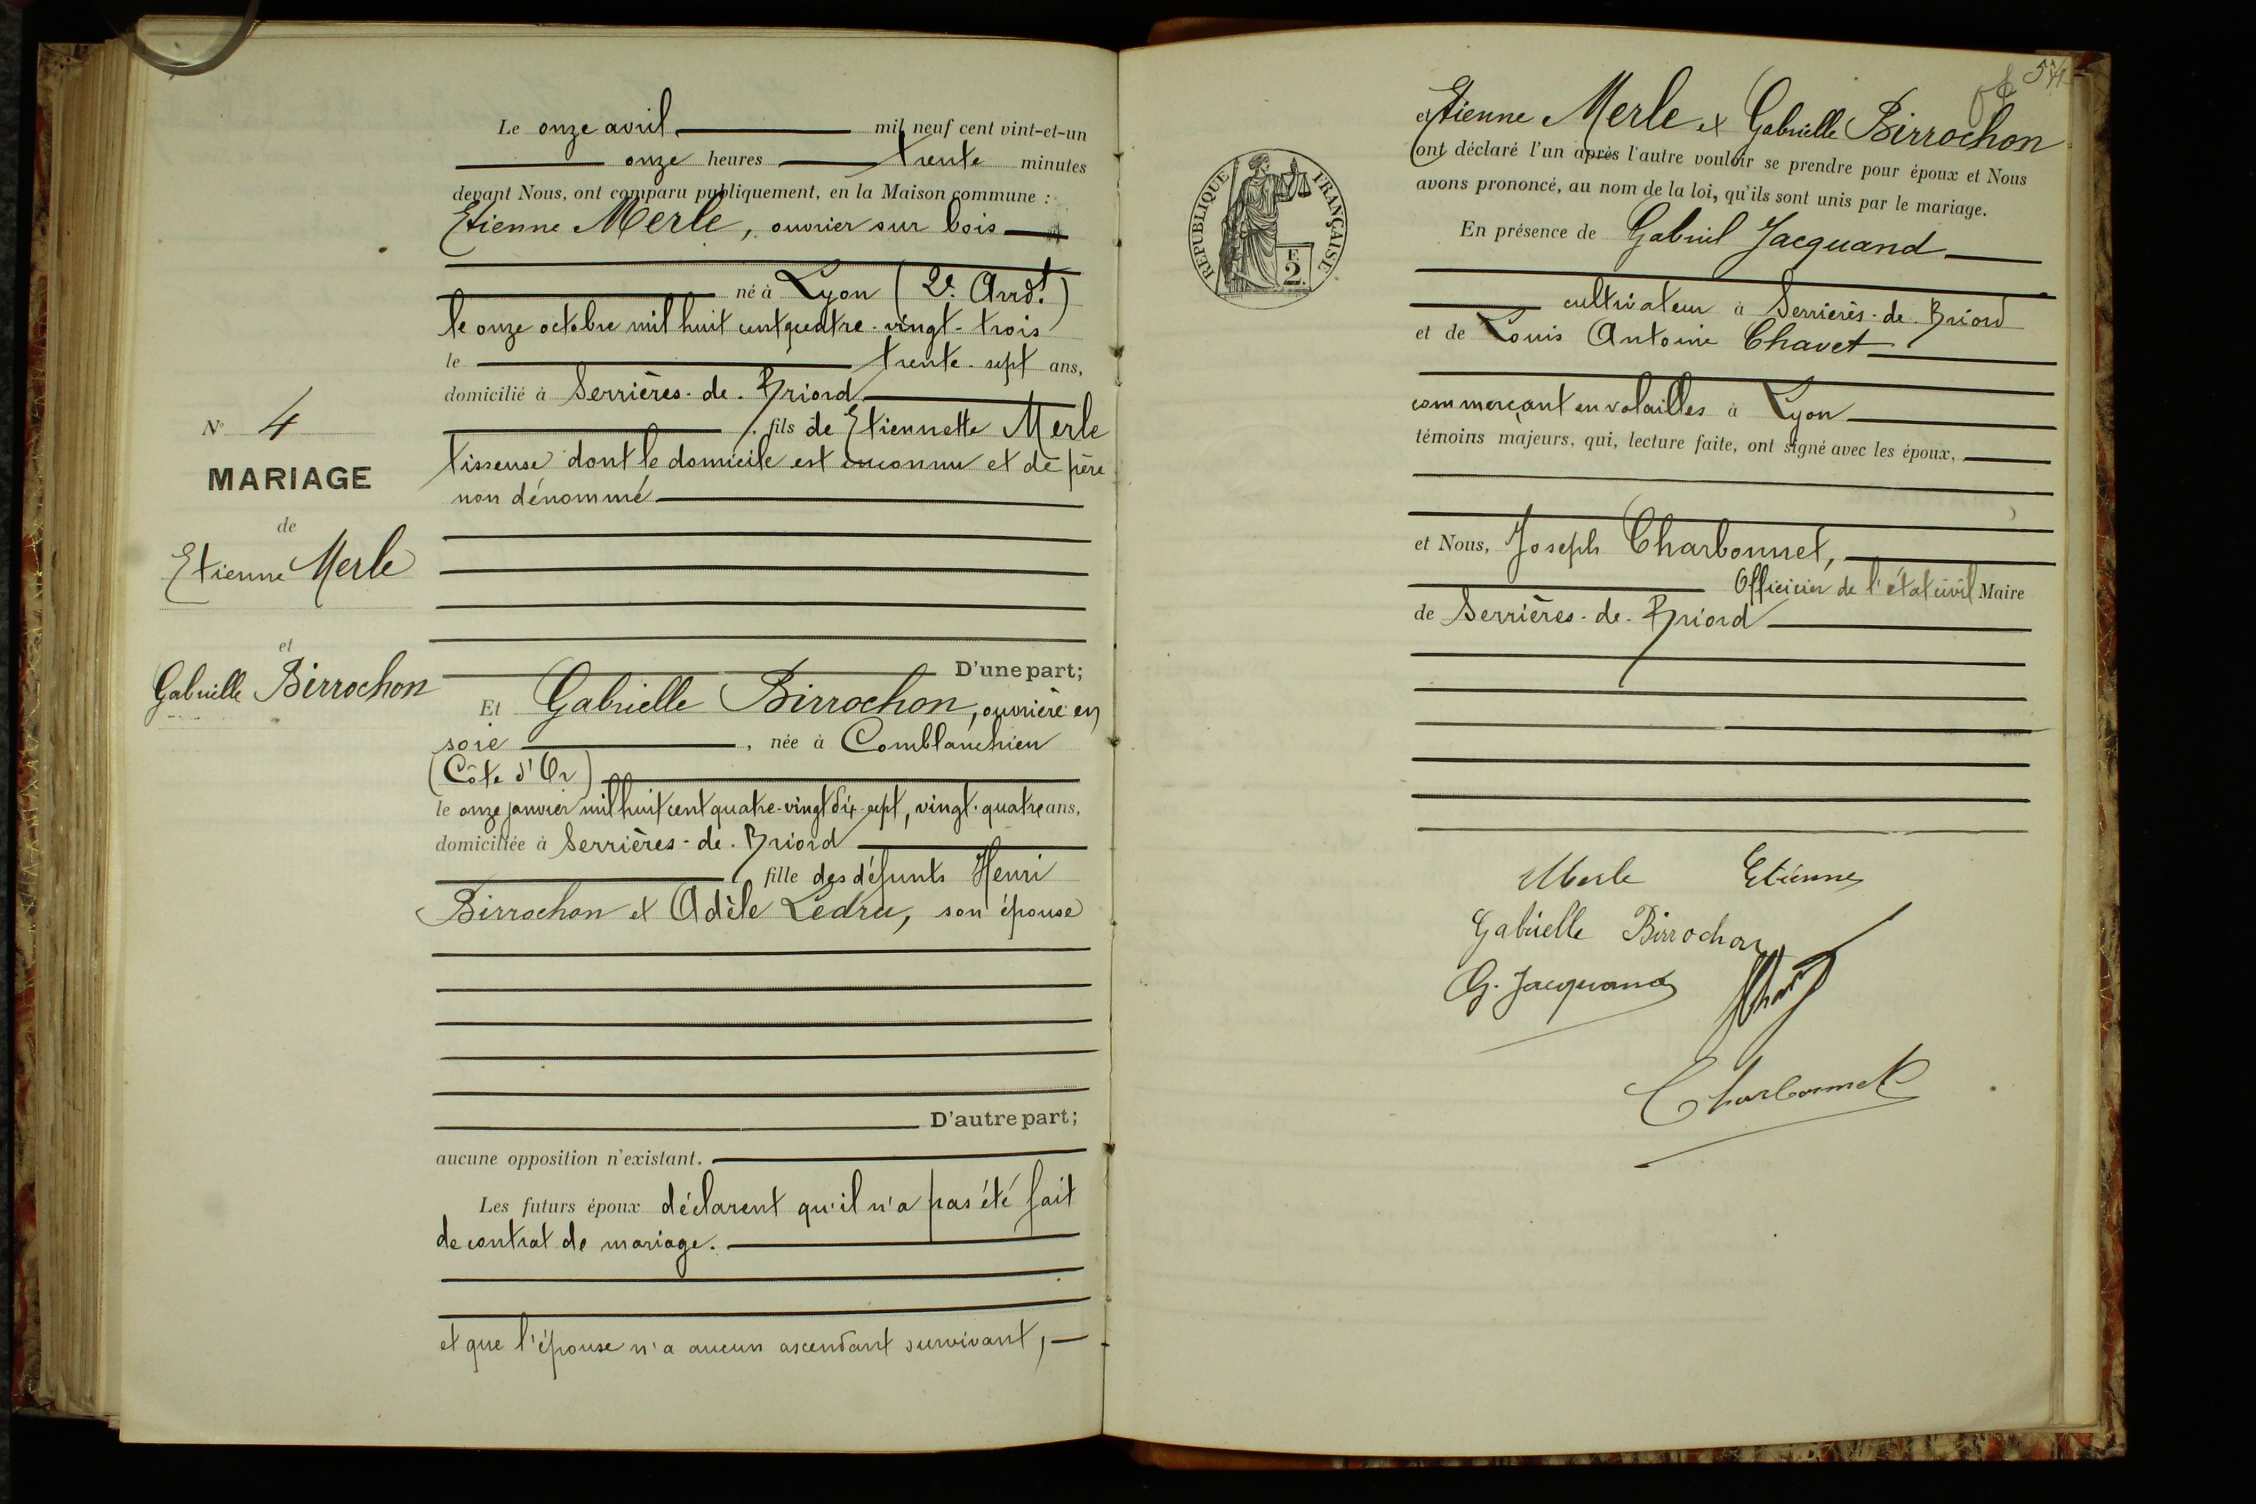 Le onze avril mil neuf cent vint-et-un
onze heures trente minutes
devant Nous, ont comparu publiquement, en la Maison commune :
Etienne Merle, ouvrier sur bois
né à Lyon (2e. Arrdt.)
le onze octobre mil huit cent quatre-vingt-trois
le trente-sept ans,
domicilié à Serrières-de-Briord
fils de Etiennette Merle
tisseuse dont le domicile est inconnu et de père
non dénommé
D'une part;
N° 4
MARIAGE
de
Etienne Merle
et
Gabrielle Birrochon
Et Gabrielle Birrochon, ouvrière en
soie, née à Comblanchien
(Côte d'Or)
le onze janvier mil huit cent quatre-vingt dix-sept, vingt-quatre ans,
domiciliée à Serrières-de-Briord
fille des défunts Henri
Birrochon et Adèle Ledru, son épouse
D'autre part;
aucune opposition n'existant.
Les futurs époux déclarent qu'il n'a pas été fait
de contrat de mariage.
et que l'épouse n'a aucun ascendant survivant,
54
RÉPUBLIQUE FRANÇAISE
F.
2.
et Etienne Merle et Gabrielle Birrochon
ont déclaré l'un après l'autre vouloir se prendre pour époux et Nous
avons prononcé, au nom de la loi, qu'ils sont unis par le mariage.
En présence de Gabriel Jacquand
cultivateur à Serrières-de-Briord
et de Louis Antoine Chavet
commerçant en volailles à Lyon
témoins majeurs, qui, lecture faite, ont signé avec les époux,
et Nous, Joseph Charbonnet,
Officicier de l'état civil Maire
de Serrières-de-Briord
Merle Etienne
Gabrielle Birrochon
G. Jacquand
Charbonnet